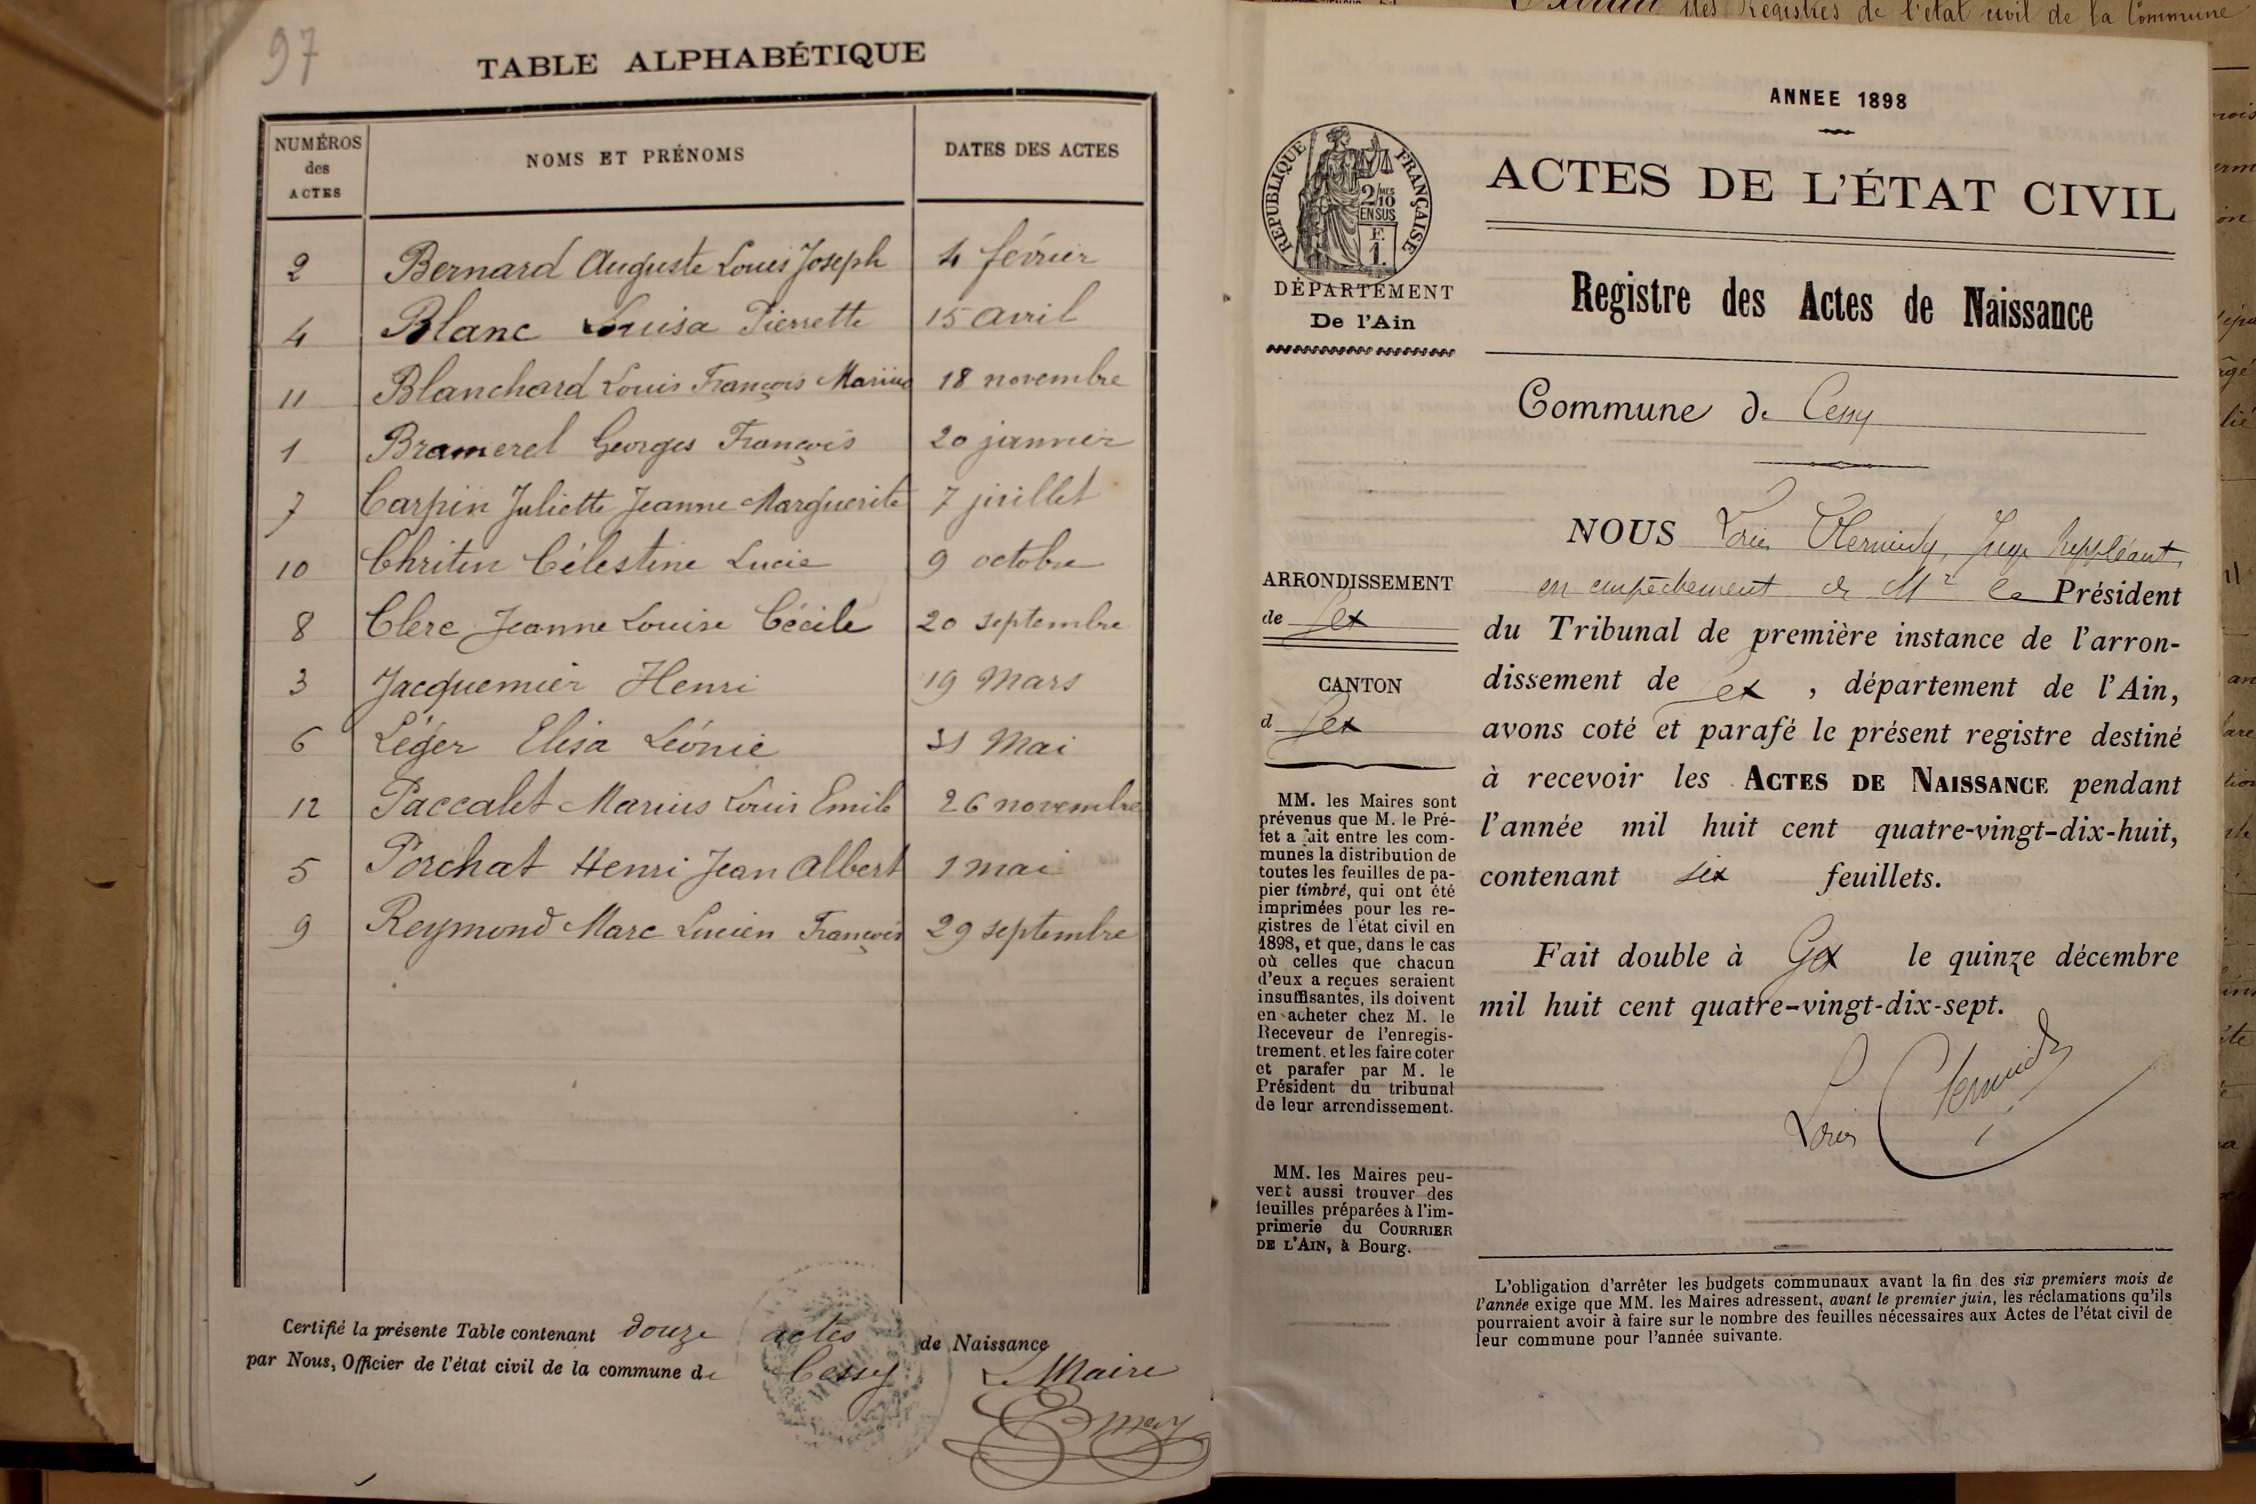 97
TABLE ALPHABÉTIQUE
NUMÉROS des ACTES NOMS ET PRÉNOMS DATES DES ACTES
2 Bernard Auguste Louis Joseph 4 février
4 Blanc Louisa Pierrette 15 avril
11 Blanchard Louis François Marius 18 novembre
1 Bramerel Georges François 20 janvier
7 Carpin Juliette Jeanne Marguerite 7 juillet
10 Chriten Célestine Lucie 9 octobre
8 Clerc Jeanne Louise Cécile 20 septembre
3 Jacquemier Henri 19 Mars
6 Léger Elisa Léonie 31 Mai
12 Paccalet Marius Louis Emile 26 novembre
5 Porchat Henri Jean Albert 1 mai
9 Reymond Marc Lucien François 29 septembre
Certifié la présente Table contenant douze actes de Naissance
par Nous, Officier de l'état civil de la commune de Cessy
Le Maire
des Registres de l'état civil de la Commune
ANNEE 1898
RÉPUBLIQUE FRANÇAISE
2/10 MES
EN SUS
F.
1.
DÉPARTEMENT
De l'Ain
ACTES DE L'ÉTAT CIVIL
Registre des Actes de Naissance
Commune de Cessy
ARRONDISSEMENT
de Gex
CANTON
d Gex
MM. les Maires sont
prévenus que M. le Pré-
fet a fait entre les com-
munes la distribution de
toutes les feuilles de pa-
pier timbré, qui ont été
imprimées pour les re-
gistres de l'état civil en
1898, et que, dans le cas
où celles que chacun
d'eux a reçues seraient
insuffisantes, ils doivent
en acheter chez M. le
Receveur de l'enregis-
trement, et les faire coter
et parafer par M. le
Président du tribunal
de leur arrondissement.
MM. les Maires peu-
vent aussi trouver des
feuilles préparées à l'im-
primerie du COURRIER
DE L'AIN, à Bourg.
NOUS Louis Juge suppléant,
en empêchement de Mr le Président
du Tribunal de première instance de l'arron-
dissement de Gex, département de l'Ain,
avons coté et parafé le présent registre destiné
à recevoir les ACTES DE NAISSANCE pendant
l'année mil huit cent quatre-vingt-dix-huit,
contenant six feuillets.
Fait double à Gex le quinze décembre
mil huit cent quatre-vingt-dix-sept.
Louis
L'obligation d'arrêter les budgets communaux avant la fin des six premiers mois de
l'année exige que MM. les Maires adressent, avant le premier juin, les réclamations qu'ils
pourraient avoir à faire sur le nombre des feuilles nécessaires aux Actes de l'état civil de
leur commune pour l'année suivante.